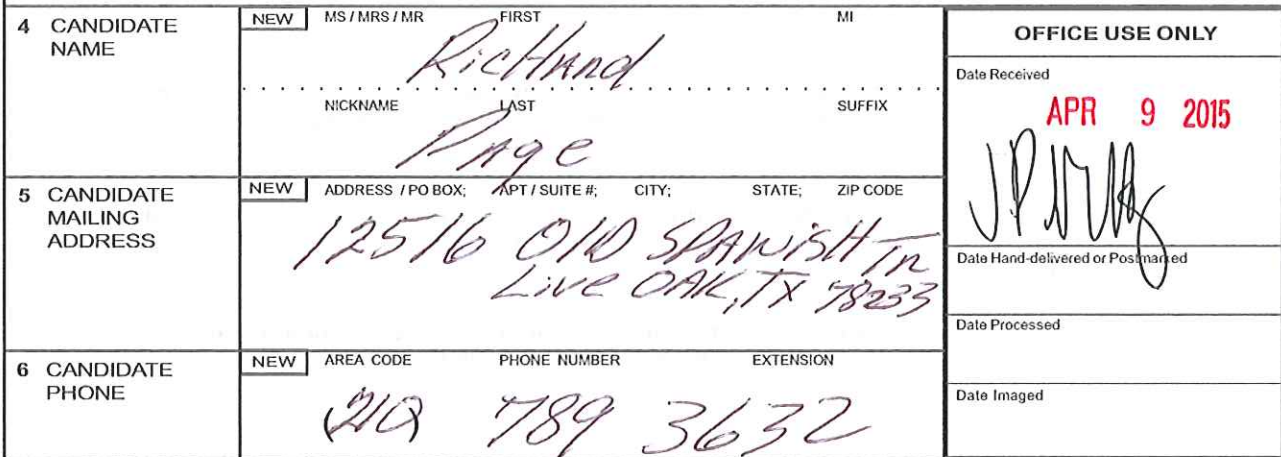 4 CANDIDATE NAME
NEW MS / MRS / MR FIRST MI
RicHARd
NICKNAME LAST SUFFIX
PAge
5 CANDIDATE MAILING ADDRESS
NEW ADDRESS / PO BOX; APT / SUITE #; CITY; STATE; ZIP CODE
12516 OlD SPANiSH Tr
Live OAK, TX 78233
6 CANDIDATE PHONE
NEW AREA CODE PHONE NUMBER EXTENSION
(210) 789 3632
OFFICE USE ONLY
Date Received
APR 9 2015
Date Hand-delivered or Postmarked
Date Processed
Date Imaged